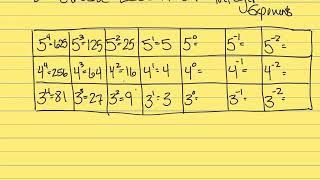 Exponents
5⁴=625 5³=125 5²=25 5¹=5 5⁰= 5⁻¹= 5⁻²=
4⁴=256 4³=64 4²=16 4¹=4 4⁰= 4⁻¹= 4⁻²=
3⁴=81 3³=27 3²=9 3¹=3 3⁰= 3⁻¹= 3⁻²=